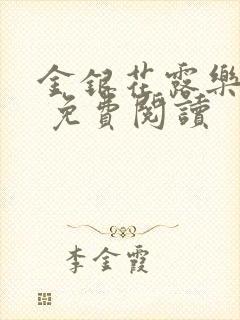 金銀花露樂
免費閱讀
李金霞